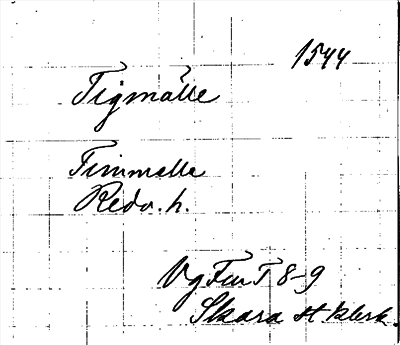 1544
Tigmälle
Fimmelle
Redv. h.
Vg Fur T 8-9
Skara st klerk.